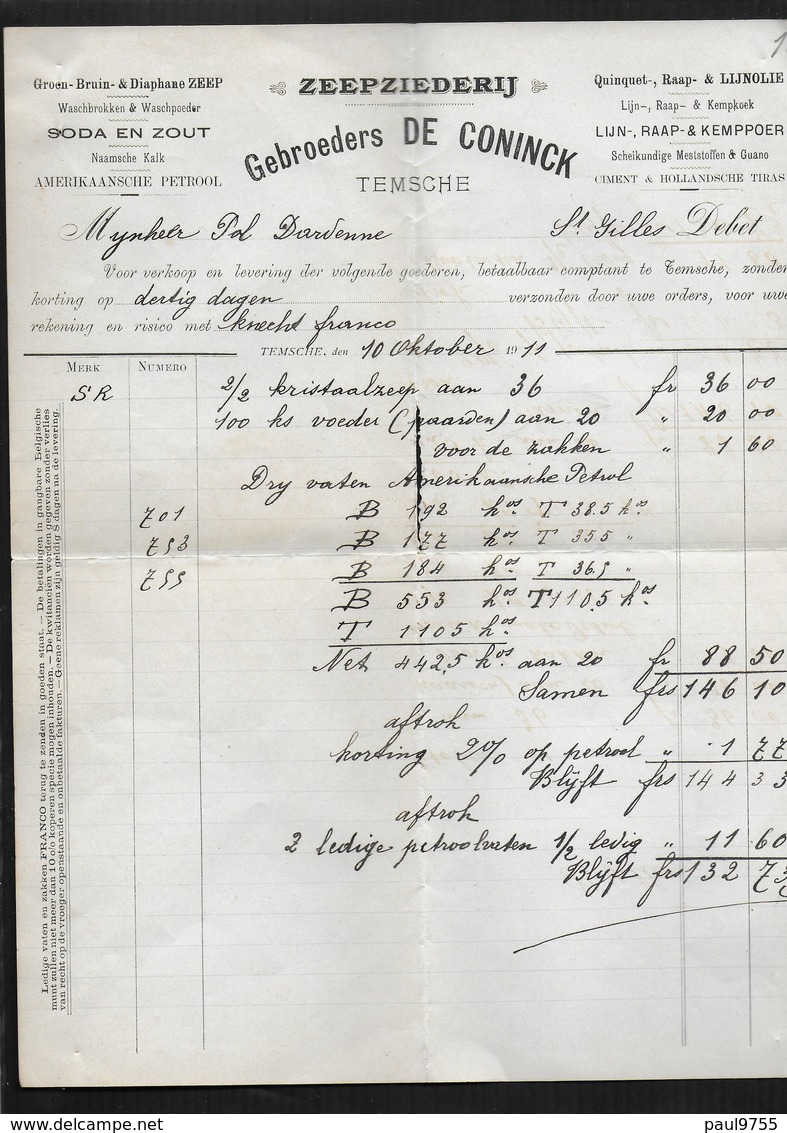 Groen- Bruin- & Diaphane ZEEP
Waschbrokken & Waschpoeder
SODA EN ZOUT
Naamsche Kalk
AMERIKAANSCHE PETROOL
ZEEPZIEDERIJ
Gebroeders DE CONINCK
TEMSCHE
Quinquet-, Raap- & LIJNOLIE
Lijn-, Raap- & Kempkoek
LIJN-, RAAP- & KEMPPOER
Scheikundige Meststoffen & Guano
CIMENT & HOLLANDSCHE TIRAS
Mynheer Pol Dardenne St Gilles Debet
Voor verkoop en levering der volgende goederen, betaalbaar comptant te Temsche, zonder
korting op dertig dagen verzonden door uwe orders, voor uwe
rekening en risico met knecht franco
TEMSCHE, den 10 Oktober 1911
MERK NUMERO
SR 2/2 kristaalzeep aan 36 fr 36 00
100 ks voeder (paarden) aan 20 " 20 00
voor de zakken " 1 60
Dry vaten Amerikaansche Petrol
701 B 192 kos. T 38.5 kos
753 B 177 kos. T 35 5 "
755 B 184 kos. T 36.5 "
B 553 kos. T 110,5 kos.
T 110 5 kos.
Net 442,5 kos. aan 20 fr 88 50
Samen frs 146 10
aftrok
korting 2% op petrool " 1 77
Blijft frs 144 33
aftrok
2 ledige petroolvaten 1/2 ledig " 11 60
Blijft frs 132 73
Ledige vaten en zakken FRANCO terug te zenden in goeden staat. — De betalingen in gangbare Belgische
munt zullen niet meer dan 10 o/o koperen specie mogen inhouden. — De kwitanciën worden gegeven zonder verlies
van recht op de vroeger openstaande en onbetaalde fakturen. — Geene reklamen zijn geldig 8 dagen na de levering.
paul9755